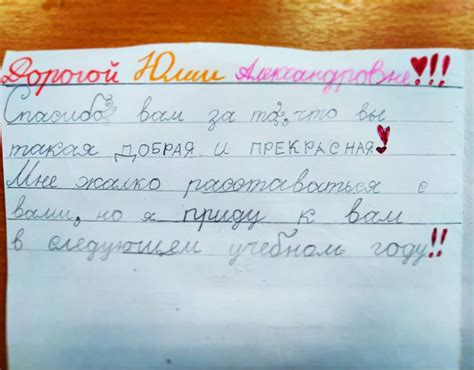 Дорогой Юлии Александровне!!!
Спасибо вам за то, что вы
такая ДОБРАЯ И ПРЕКРАСНАЯ!
Мне жалко расставаться с
вами, но я приду к вам
в следующем учебном году!!